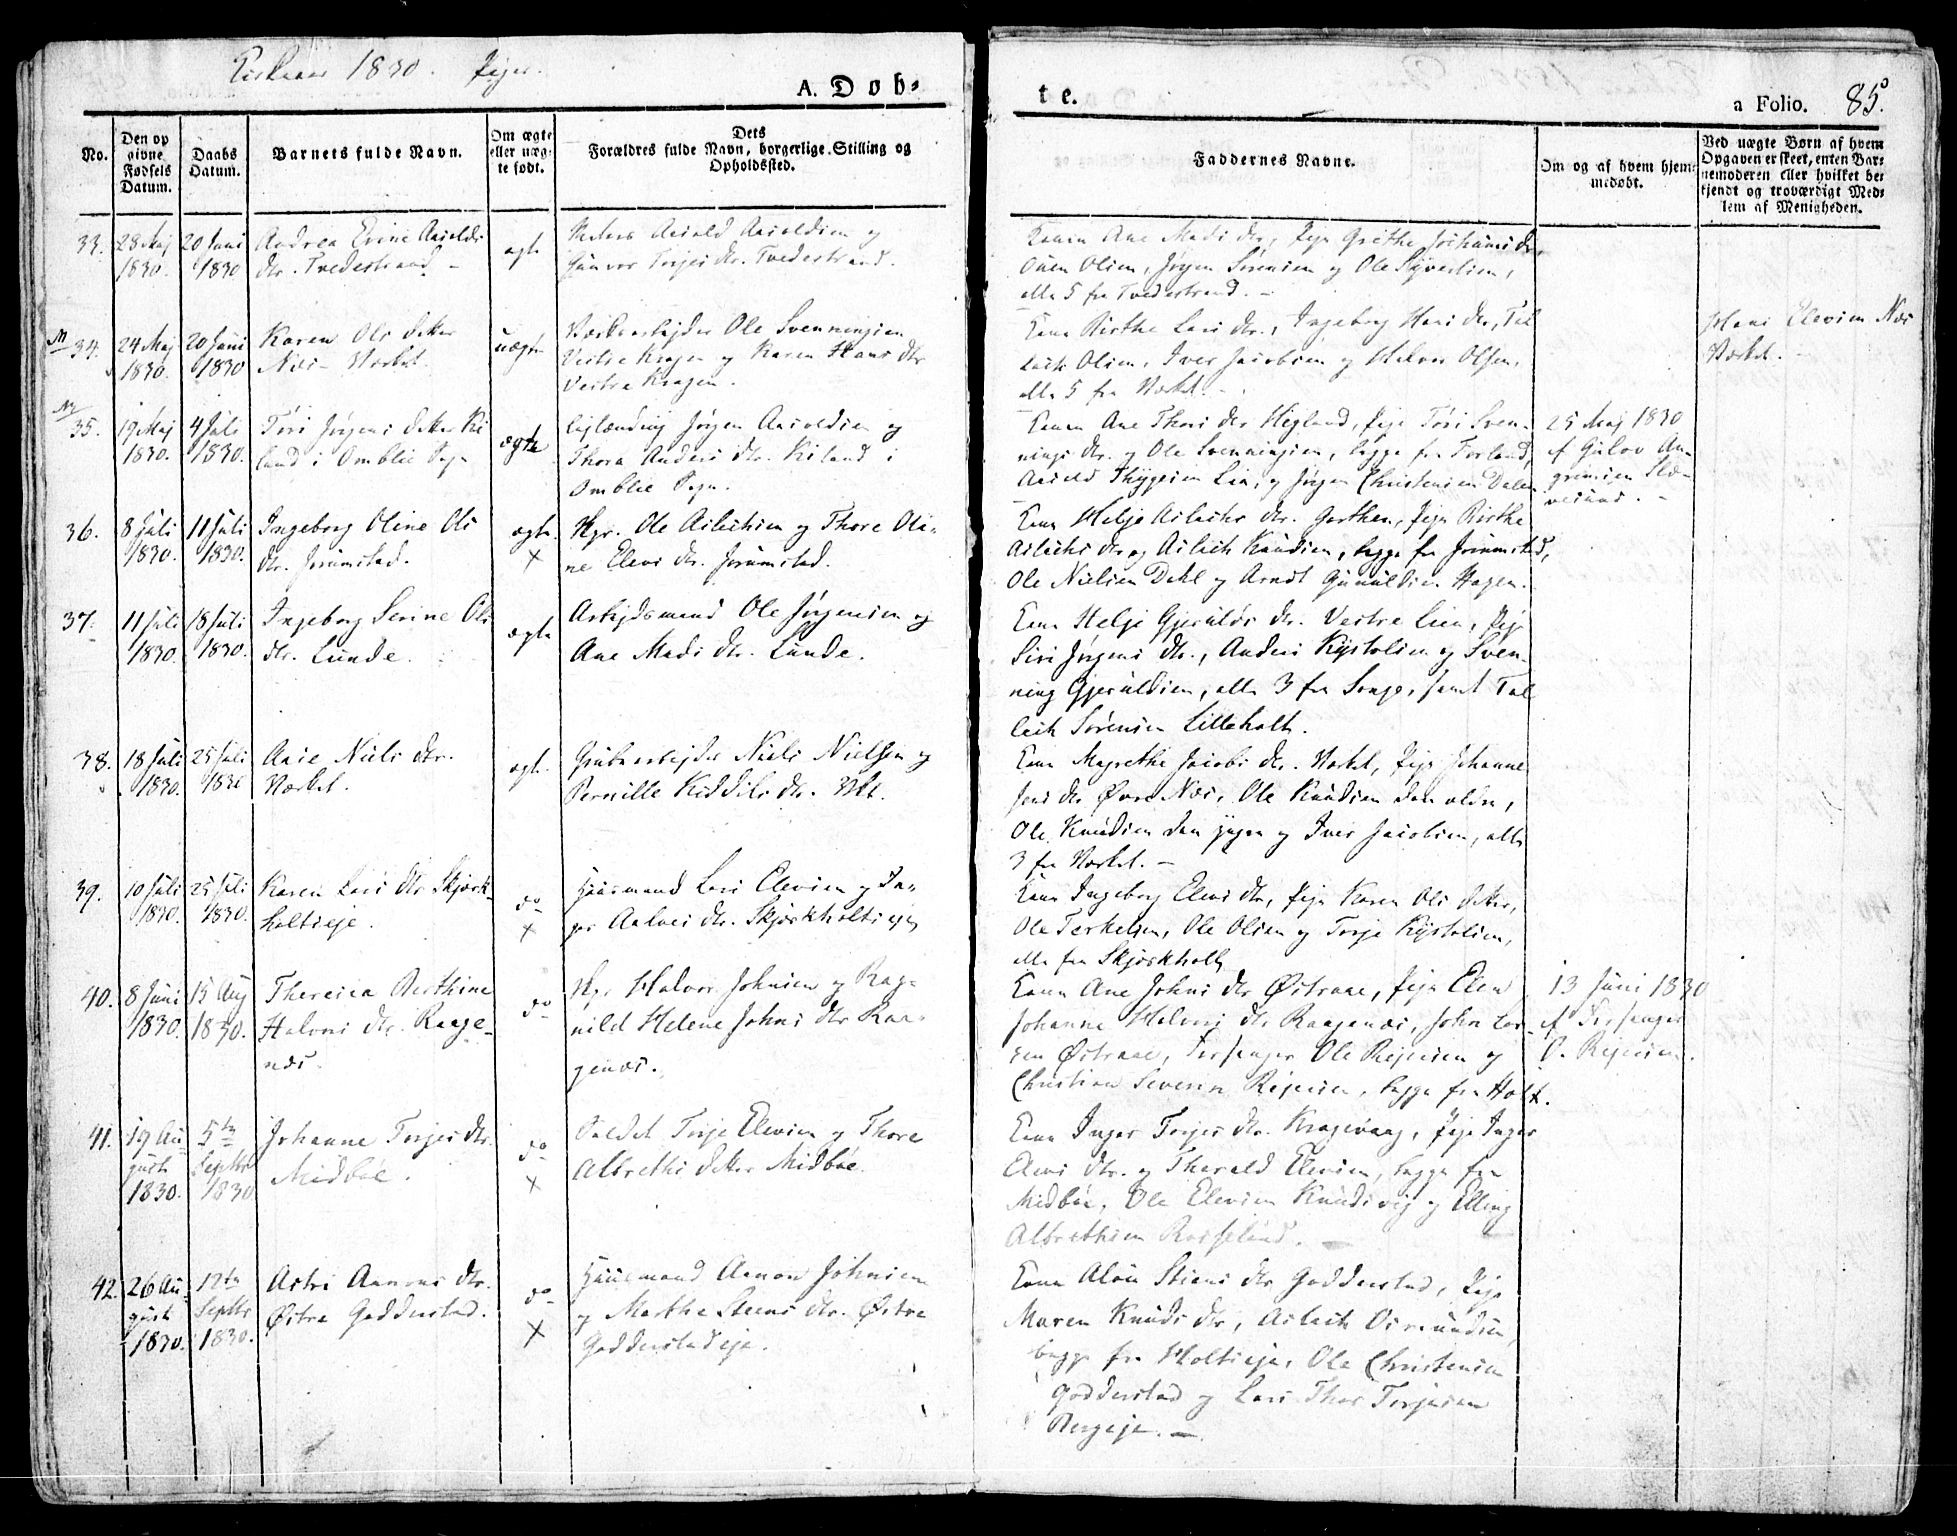 Kirkeaar 1830. Piger.
A. Døb-
te.
a Folio. 85.
No.
Den op
givne
Fødsels
Datum.
Daabs
Datum.
Barnets fulde Navn.
Om ægte
eller uæg-
te født.
Dets
Forældres fulde Navn, borgerlige Stilling og
Opholdssted.
Faddernes Navne.
Om og af hvem hjem-
medøbt.
Ved uægte Børn af hvem
Opgaven er skeet, enten Bar-
nemoderen eller hvilket be-
kjendt og troværdigt Med-
lem af Menigheden.
33. 28 Maj 1830. 20 Juni 1830
Andrea Aasolds
dtr. Tvedestrand
ægte
Aasold Aasoldsen og
Gunvor Torjes dtr. Tvedestrand.
Konen Ane Mads dtr, Pige Grethe
Ouen Olsen, Jørgen Sørensen og Ole Syvertsen,
alle 5 fra Tvedestrand.
34. 24 Maj 1830. 20 Juni 1830
Karen Ols datter
Næs Værket.
uægte
Værksarbejder Ole Svenningsen
Vestre Kragen og Karen Hans dtr
Vestre Kragen.
Kone Birthe Lars dtr., Ingeborg Hans dtr, Tal
lach Olsen, Iver Jacobsen og Halvor Olsen,
alle 5 fra Værket.
Hans Elevsen Næs
Værket.
35. 19 Maj 1830. 4 Juli 1830.
Tøri Jørgens datter Ki
land i Omblie Sogn
ægte
Inglænding Jørgen Aasoldsen og
Thora Anders dtr. Kiland i
Omblie Sogn.
Konen Ane Thors dtr Høgland, Pige Tøri Sven-
nings dtr. og Ole Svenningsen, begge fra Forland,
Aasold Thygesen Lien, og Jørgen Christensen Dalen
25 Maj 1830
af Gulov An-
36. 8 Juli 1830. 11 Juli 1830.
Ingeborg Oline Ols
dtr. Jorumstad.
ægte
X
Hgr. Ole Aslachsen og Thore Oli-
ne Elevs dtr. Jorumstad.
Kone Helje Aslachs dtr. Garthen, Pige Birthe
Aslachs dtr og Aslach Knudsen, begge fra Jorumstad,
Ole Nielsen Dahl og Arndt Gunuldsen Hagen.
37. 11 Juli 1830. 18 Juli 1830.
Ingeborg Serine Ols
dtr. Lunde.
ægte
Arbejdsmand Ole Jørgensen og
Ane Mads dtr. Lunde.
Kone Helje Gjerulds dtr. Vestre Lien, Pige
Siri Jørgens dtr., Anders Kistolsen og Sven-
ning Gjeruldsen, alle 3 fra Songe, samt Tal
lach Sørensen Lilleholt.
38. 18 Juli 1830. 25 Juli 1830
Aase Niels dtr.
Værket.
ægte
Grubearbejder Niels Nielsen og
Pernille Kiddils dtr. Vkt.
Kone Magrethe Jacobs dtr. Værket, Pige Johanne
Jens dtr Øvre Næs, Ole Knudsen den ældre,
Ole Knudsen den yngre og Iver Jacobsen, alle
3 fra Værket.
39. 10 Juli 1830. 25 Juli 1830.
Karen Lars dtr Skjærk-
holtseje.
do
X
Huusmand Lars Elevsen og In-
ger Aalvs dtr. Skjærkholtseje
Kone Ingeborg Elevs dtr, Pige Karen Ols datter,
Ole Terkelsen, Ole Olsen og Torje Kistolsen,
alle fra Skjærkholt
40. 8 Juni 1830. 15 Aug 1830.
Theresia Berthine
Halvors dtr. Raage-
næs.
do
Hgr Halvor Johnsen og Rag-
nild Helene Johns dtr Raa-
genæs.
Kone Ane Johns dtr Østraae, Pige Elen
Johanne Halvors dtr Raagenæs, John Lar-
sen Østraae, Forsanger Ole Rejersen og
Christian Severin Rejersen, begge fra Holt.
13 Juni 1830
af Forsanger
O. Rejersen.
41. 19 August 1830. 5te Septbr 1830
Johanne Torjes dtr.
Midbøe.
do
X
Soldat Torje Elevsen og Thore
Albrethts datter Midbøe.
Kone Inger Torjes dtr. Kragevaag, Pige Inger
Elevs dtr. og Therald Elevsen, begge fra
Midbøe, Ole Elevsen Knudsvig og Elling
Albrethsen Rosseland.
42. 26 August 1830. 12te Septbr 1830.
Astri Aanons dtr.
Østre Godderstad.
do
X
Huusmand Aanon Johnsen
og Marthe Steens dtr. Østre
Godderstadeje.
Kone Aløu Stians dtr Godderstad, Pige
Maren Knuds dtr, Aslach Osmundsen
begge fra Holtseje, Ole Christensen
Godderstad og Lars Thor Torjesen
Bergeje.